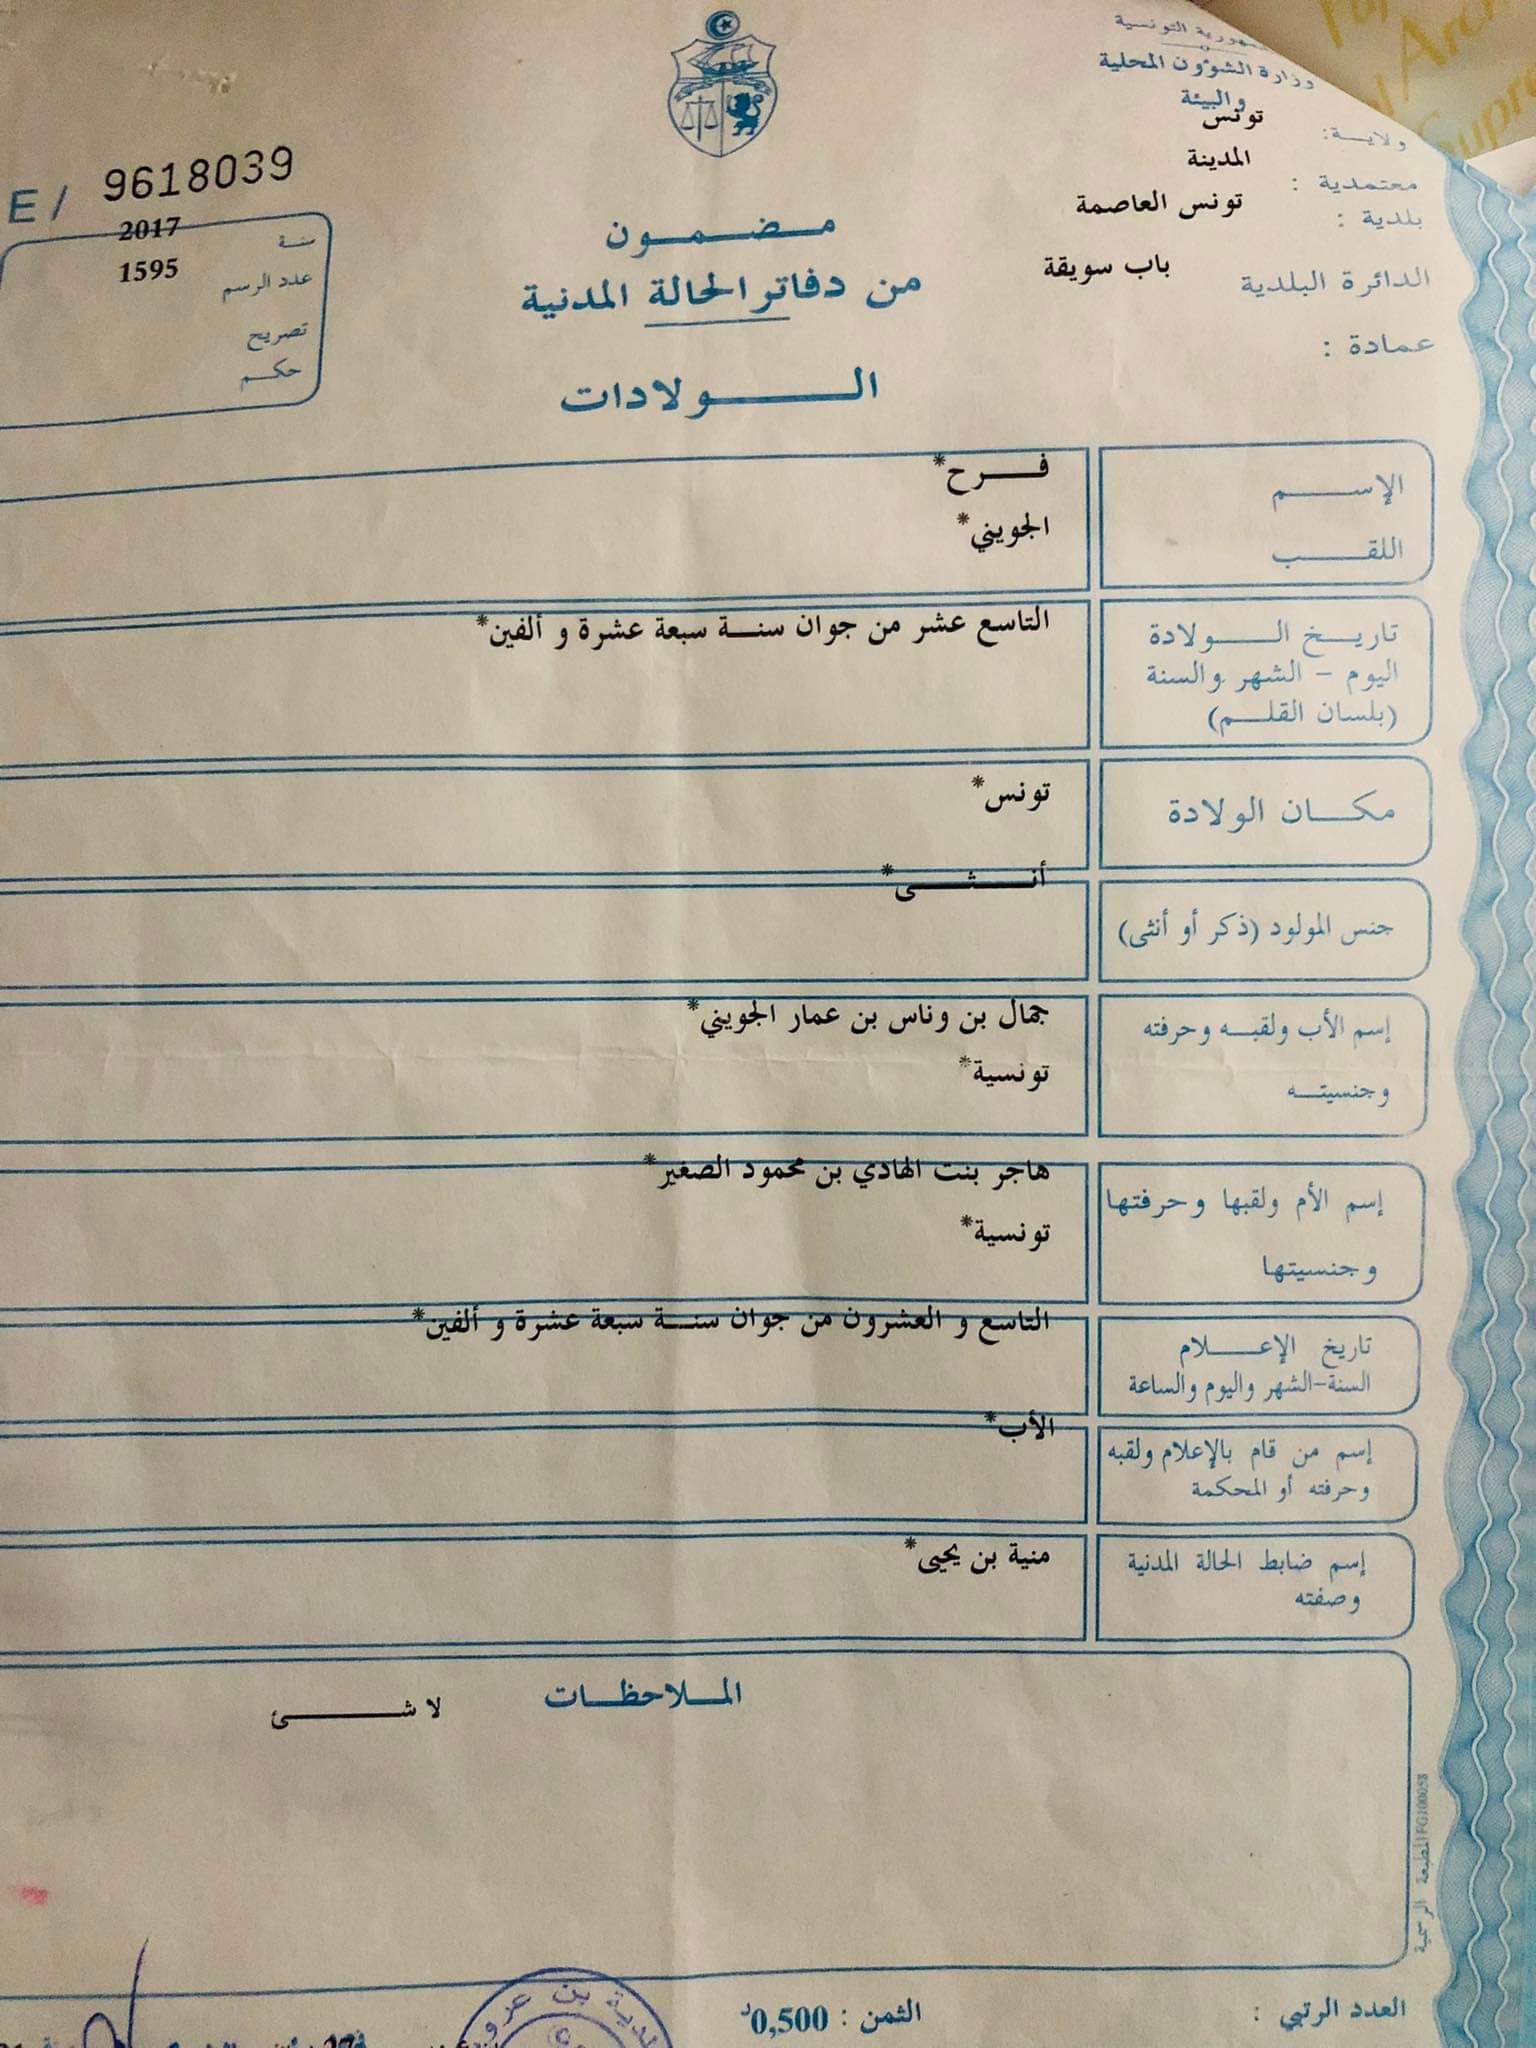 الجمهورية التونسية
وزارة الشؤون المحلية
والبيئة
ولاية: تونس
معتمدية : المدينة
بلدية : تونس العاصمة
الدائرة البلدية باب سويقة
عمادة :
E / 9618039
سنة 2017
عدد الرسم 1595
تصريح
حكم
مضمون
من دفاتر الحالة المدنية
الولادات
الإسم فرح*
اللقب الجويني*
تاريخ الولادة التاسع عشر من جوان سنة سبعة عشرة و ألفين*
اليوم - الشهر والسنة
(بلسان القلم)
مكان الولادة تونس*
جنس المولود (ذكر أو أنثى) أنثى*
إسم الأب ولقبه وحرفته جمال بن وناس بن عمار الجويني*
وجنسيته تونسية*
إسم الأم ولقبها وحرفتها هاجر بنت الهادي بن محمود الصغير*
وجنسيتها تونسية*
تاريخ الإعلام التاسع و العشرون من جوان سنة سبعة عشرة و ألفين*
السنة-الشهر واليوم والساعة
إسم من قام بالإعلام ولقبه الأب*
وحرفته أو المحكمة
إسم ضابط الحالة المدنية منية بن يحيى*
وصفته
الملاحظات لا شئ
المطبعة الرسمية FG100058
العدد الرتبي :
الثمن : 0,500د
بلدية بن عروس